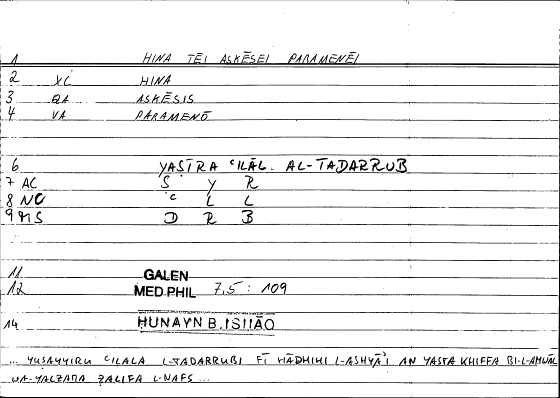 1 HINA TĒI ASKĒSEI PARAMENĒI
2 XC HINA
3 QA ASKĒSIS
4 VA PARAMENŌ
6 YASTRA ʿILAL. AL-TADARRUB
7 AC S Y R
8 NC ʿ L L
9 MS D R B
11 GALEN
12 MED PHIL 7,5 : 109
14 HUNAYN B. ISHĀQ
... YUSAYYIRU ʿILALA L-TADARRUBI FĪ HĀDHIHI L-ASHYĀʾI AN YASTAKHIFFA BI-L-AMWĀL
WA-YALZAMA L-NAFS ...